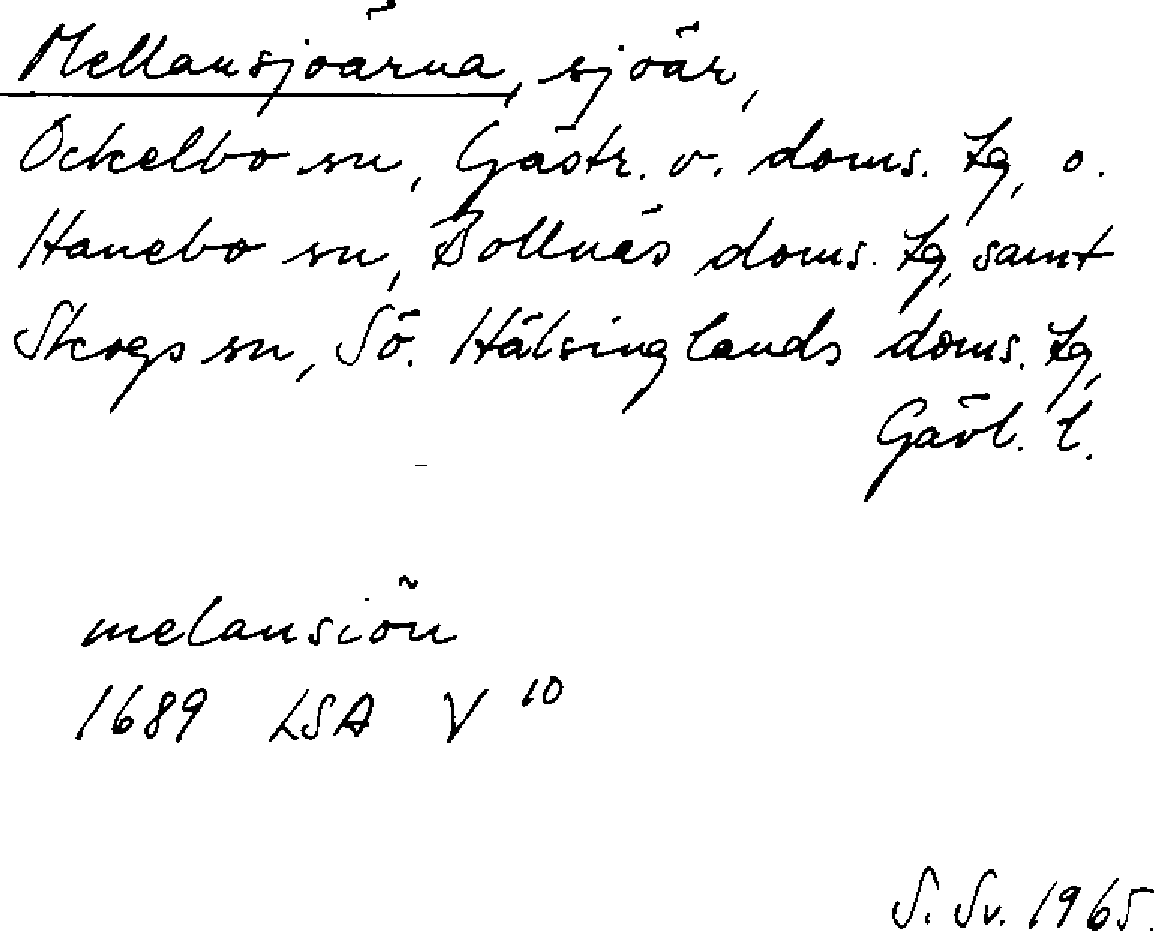 Mellansjöarna, sjöar,
Ockelbo sn, Gästr. v. doms. tg, o.
Hanebo sn, Bollnäs doms. tg, samt
Skogs sn, Sö. Hälsinglands doms. tg,
Gävl. l.
melansiön
1689 LSA V 10
S. Sv. 1965.